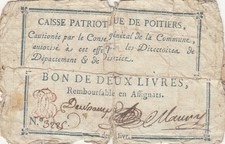 CAISSE PATRIOTIQUE DE POITIERS,
Cautionée par le Conseil Général de la Commune,
autorisé à cet effet les Directoires de
Département & de District.
BON DE DEUX LIVRES,
Remboursable en Assignats.
N.°